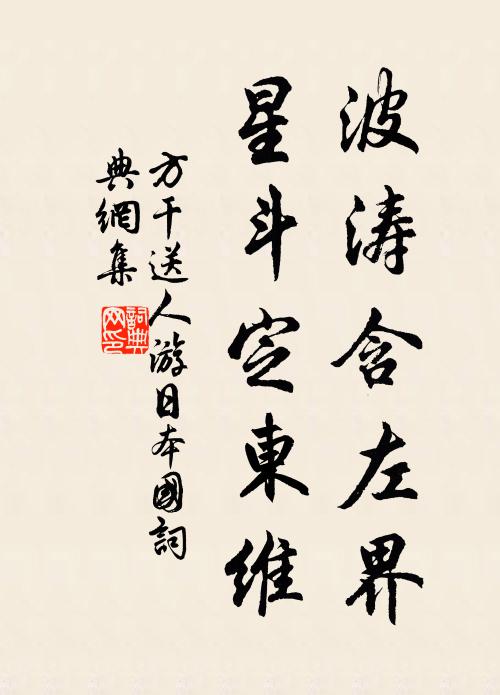 波涛含左界
星斗定東維
方干送人游日本國詞
典網集
詞典
网印